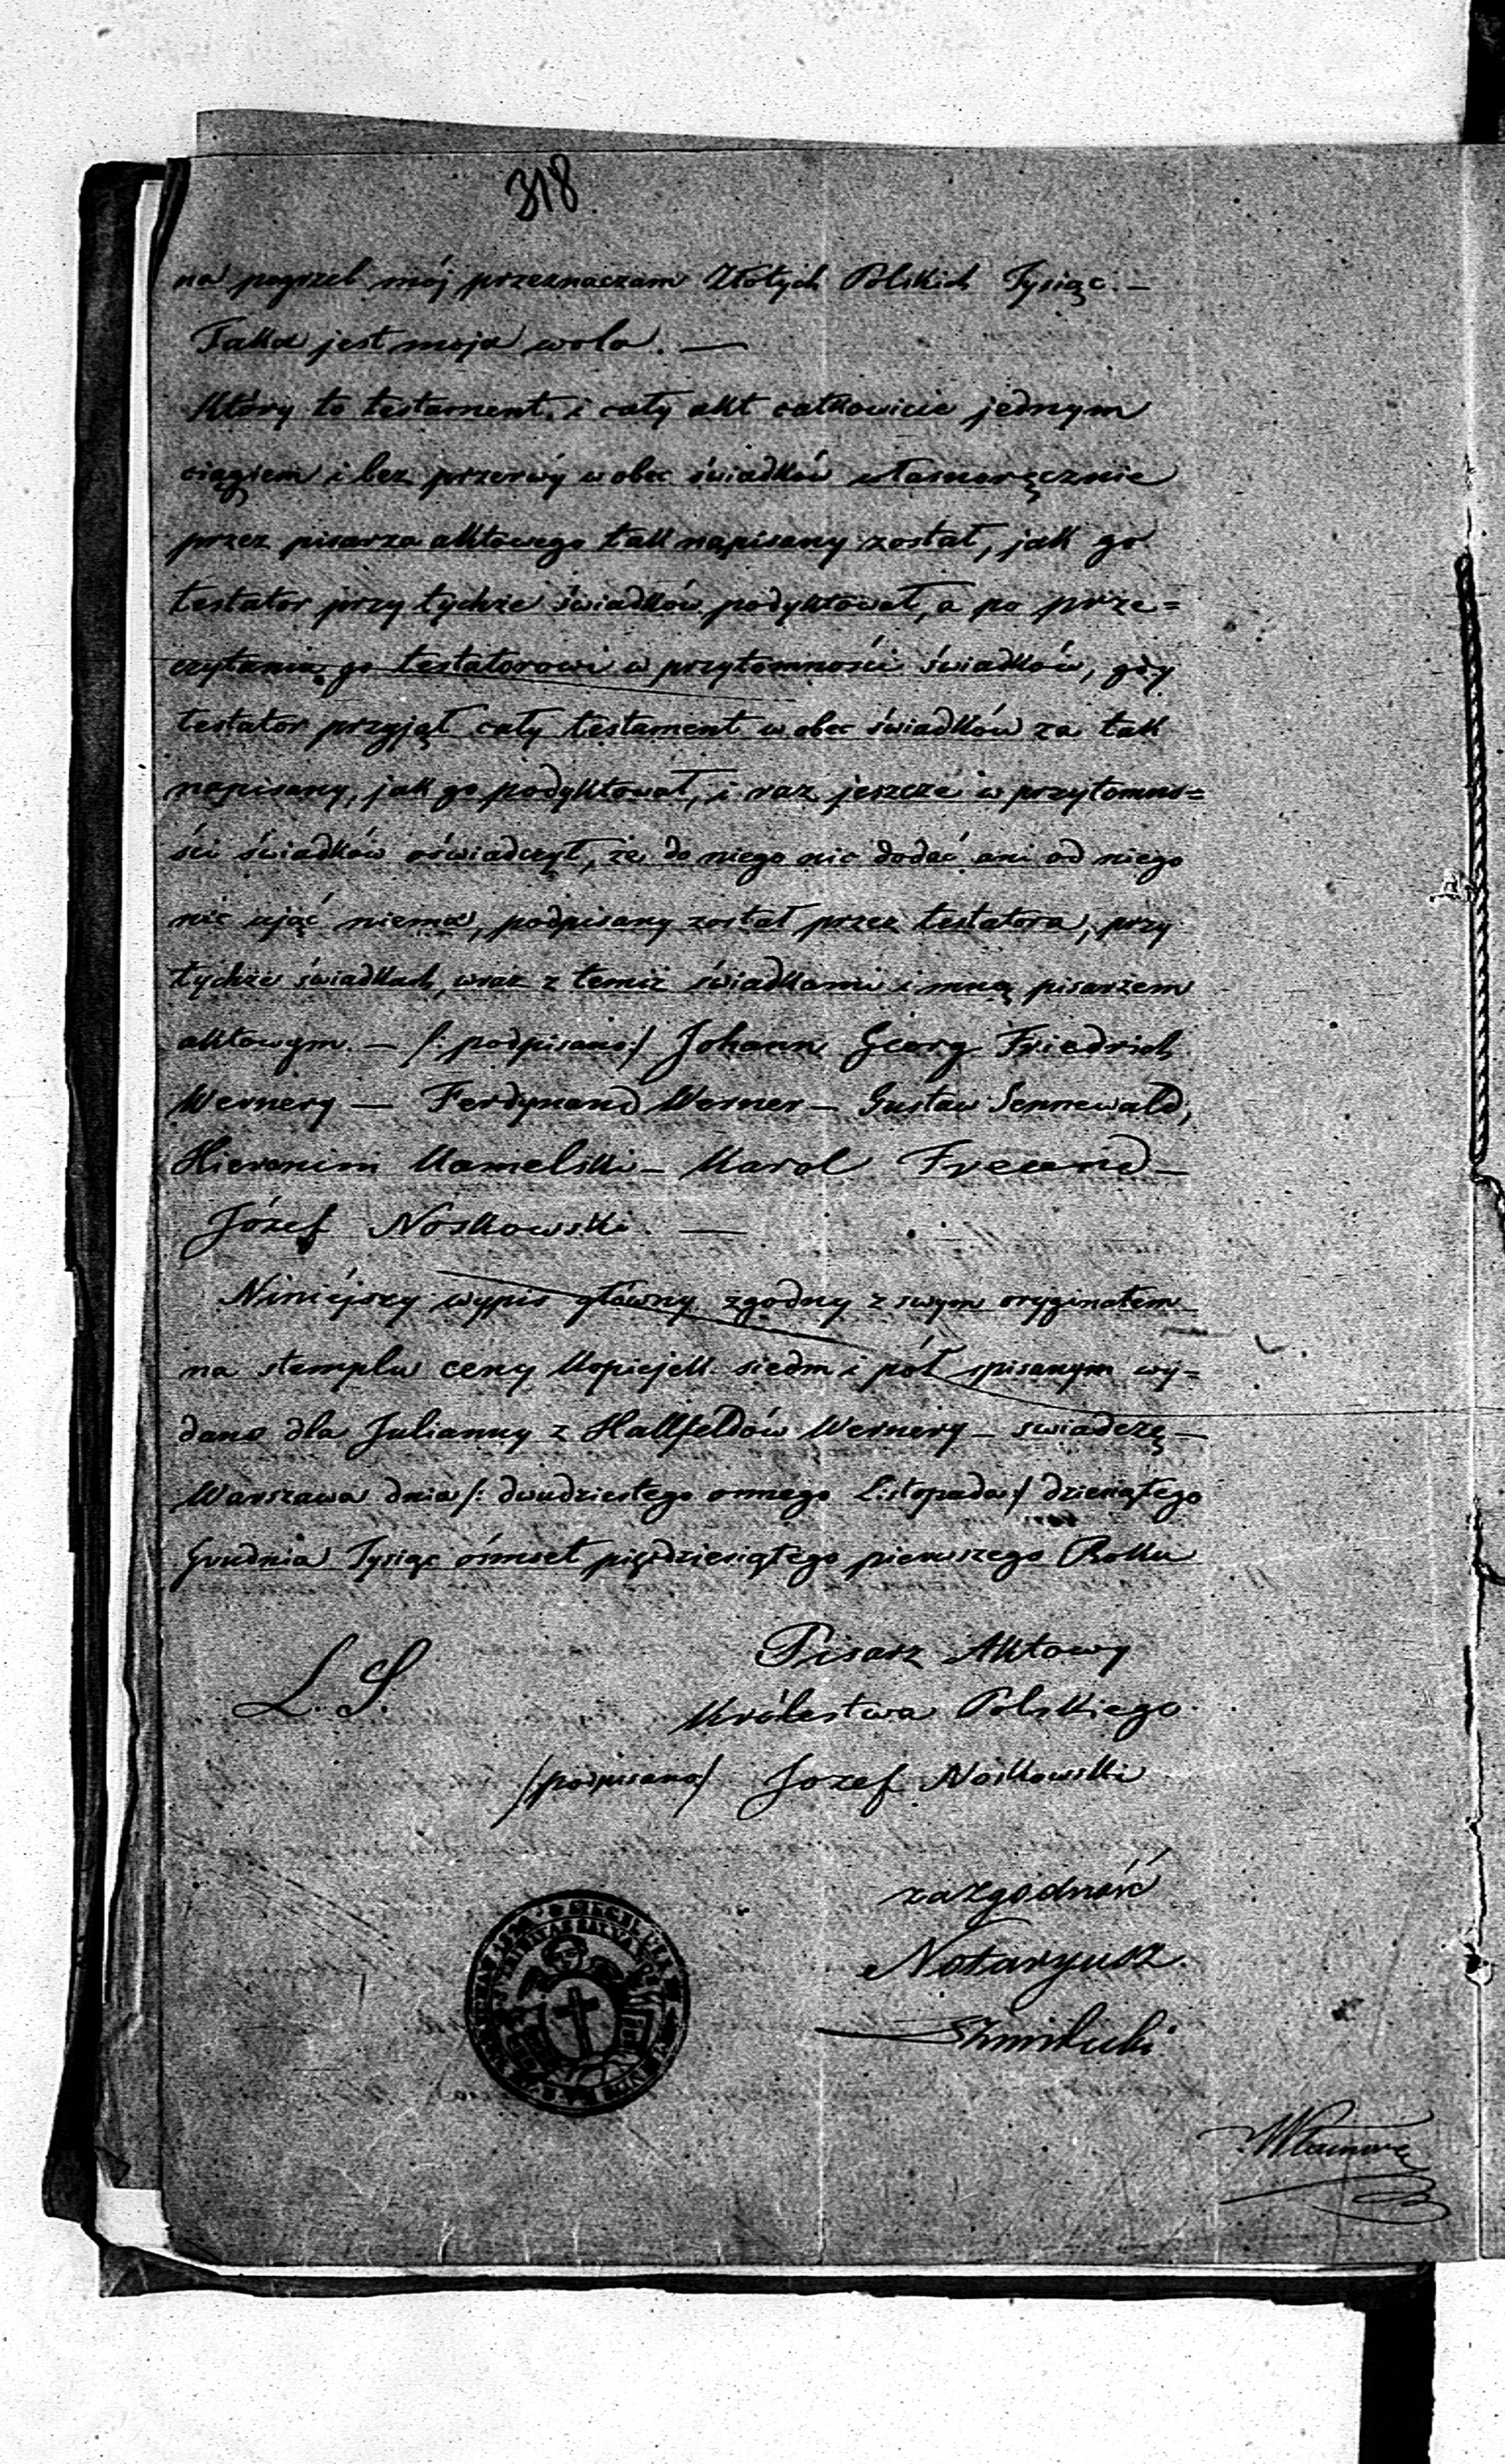 318
na pogrzeb mój przeznaczam Złotych Polskich Tysiąc. —
Taka jest moja wola. —
Który to testament, i cały akt całkowicie jednym
ciągiem i bez przerwy wobec świadków własnoręcznie
przez pisarza aktowego tak napisany został, jak go
testator przy tychże świadków podyktował, a po prze=
czytaniu go testatorowi w przytomności świadków, gdy
testator przyjął cały testament wobec świadków za tak
napisany, jak go podyktował, i raz jeszcze w przytomno=
ści świadków oświadczył, że do niego nic dodać ani od niego
nic ująć niema, podpisany został przez testatora, przy
tychże świadkach, wraz z temiż świadkami i mną pisarzem
aktowym. — /: podpisano:/ Johann Georg Friedrich
Wernery — Ferdynand Werner — Gustaw Sennewald,
Hieronim Kamelski — Karol Freund —
Józef Noskowski. —
Niniéjszy wypis główny zgodny z swym oryginałem
na stemplu ceny Kopiejek siedm i pół spisanym wy=
dano dla Julianny z Hallfeldów Wernery — swiadczę —
Warszawa dnia /: dwudziestego osmego Listopada:/ dziesiątego
Grudnia Tysiąc ośmset pięćdziesiątego pierwszego Roku
L. S.
Pisarz Aktowy
Królestwa Polskiego
/podpisano/ Jozef Noskowski
za zgodność
Notaryusz